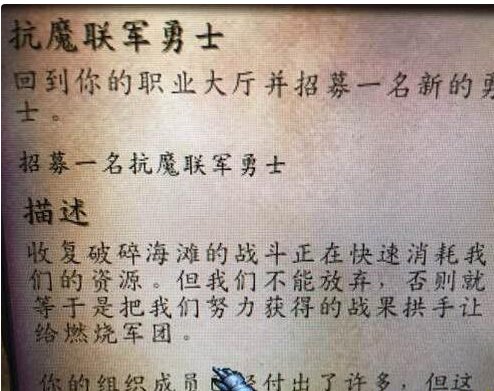 抗魔联军勇士
回到你的职业大厅并招募一名新的勇
士。
招募一名抗魔联军勇士
描述
收复破碎海滩的战斗正在快速消耗我
们的资源。但我们不能放弃，否则就
等于是把我们努力获得的战果拱手让
给燃烧军团。
你的组织成员已经付出了许多，但这